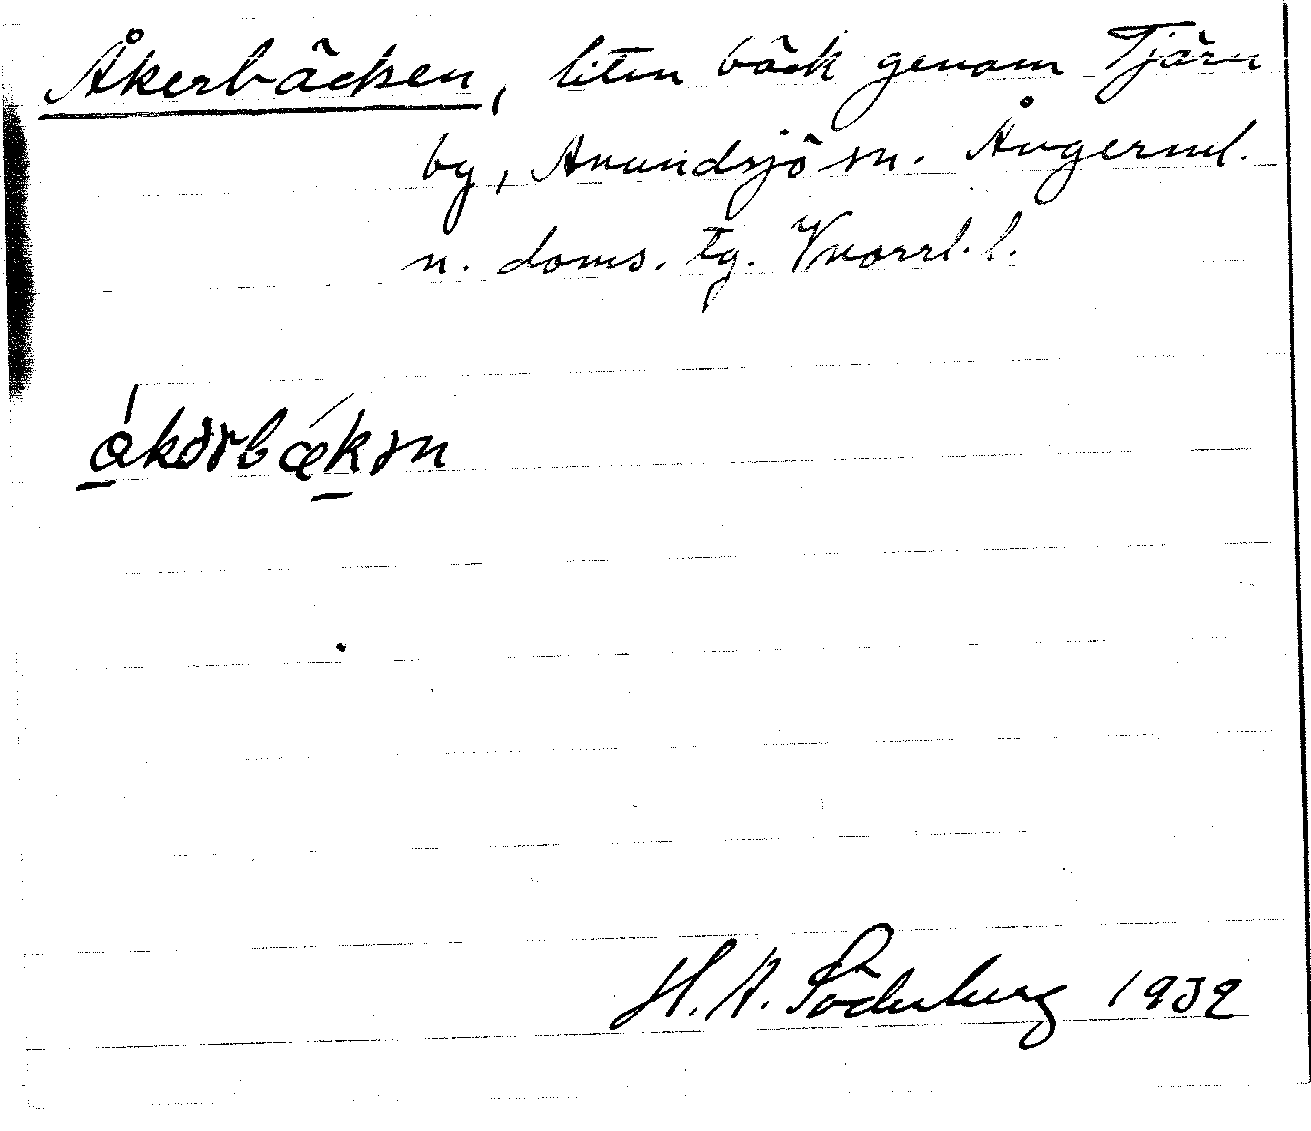 Åkerbäcken, liten bäck genom Tjärn
by, Anundsjö sn. Ångerml.
n. doms. tg. Vnorrl. l.
åkərbækən
H. A. Söderberg 1939